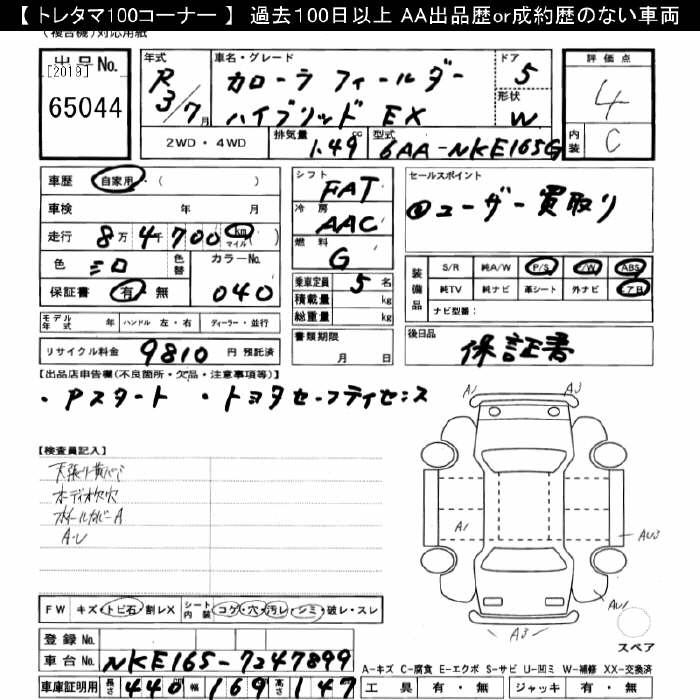 【 トレタマ100コーナー 】 過去100日以上 AA出品歴or成約歴のない車両
(複合機)対応用紙
出品No. [2019] 65044
年式 R 3/7月
車名・グレード カローラ フィールダー ハイブリッド EX
ドア 5
形状 W
評価点 4
内装 C
2WD・4WD
排気量 1.49 cc
型式 6AA-NKE165G
車歴 自家用・( )
車検 年 月
走行 8万4千700 km マイル ( )
色 シロ 色替 カラーNo. 040
保証書 有・無
シフト FAT
冷房 AAC
燃料 G
乗車定員 5名
積載量 kg
総重量 kg
セールスポイント
①ユーザー買取り
装備品 S/R 純A/W P/S P/W ABS
純TV 純ナビ 革シート 外ナビ エアB
ナビ型番:
モデル年式 年 ハンドル 左・右 ディーラー・並行
書類期限 月 日
後日品 保証書
リサイクル料金 9810 円 預託済
【出品店申告欄(不良箇所・欠品・注意事項等)】
・Pスタート ・トヨタセーフティセンス
【検査員記入】
オーディオ欠穴
ホイールカバーA
A・U
A1 A3
A1 AU3
AU1
A3
スペア
FW キズ・トビ石・割レX シート内装 コゲ・穴・汚レ・シミ・破レ・スレ
登録No.
車台No. NKE165-7247899
A-キズ C-腐食 E-エクボ S-サビ U-凹ミ W-補修 XX-交換済
車庫証明用 長さ 440 幅 169 高さ 147
工具 有・無 ジャッキ 有・無